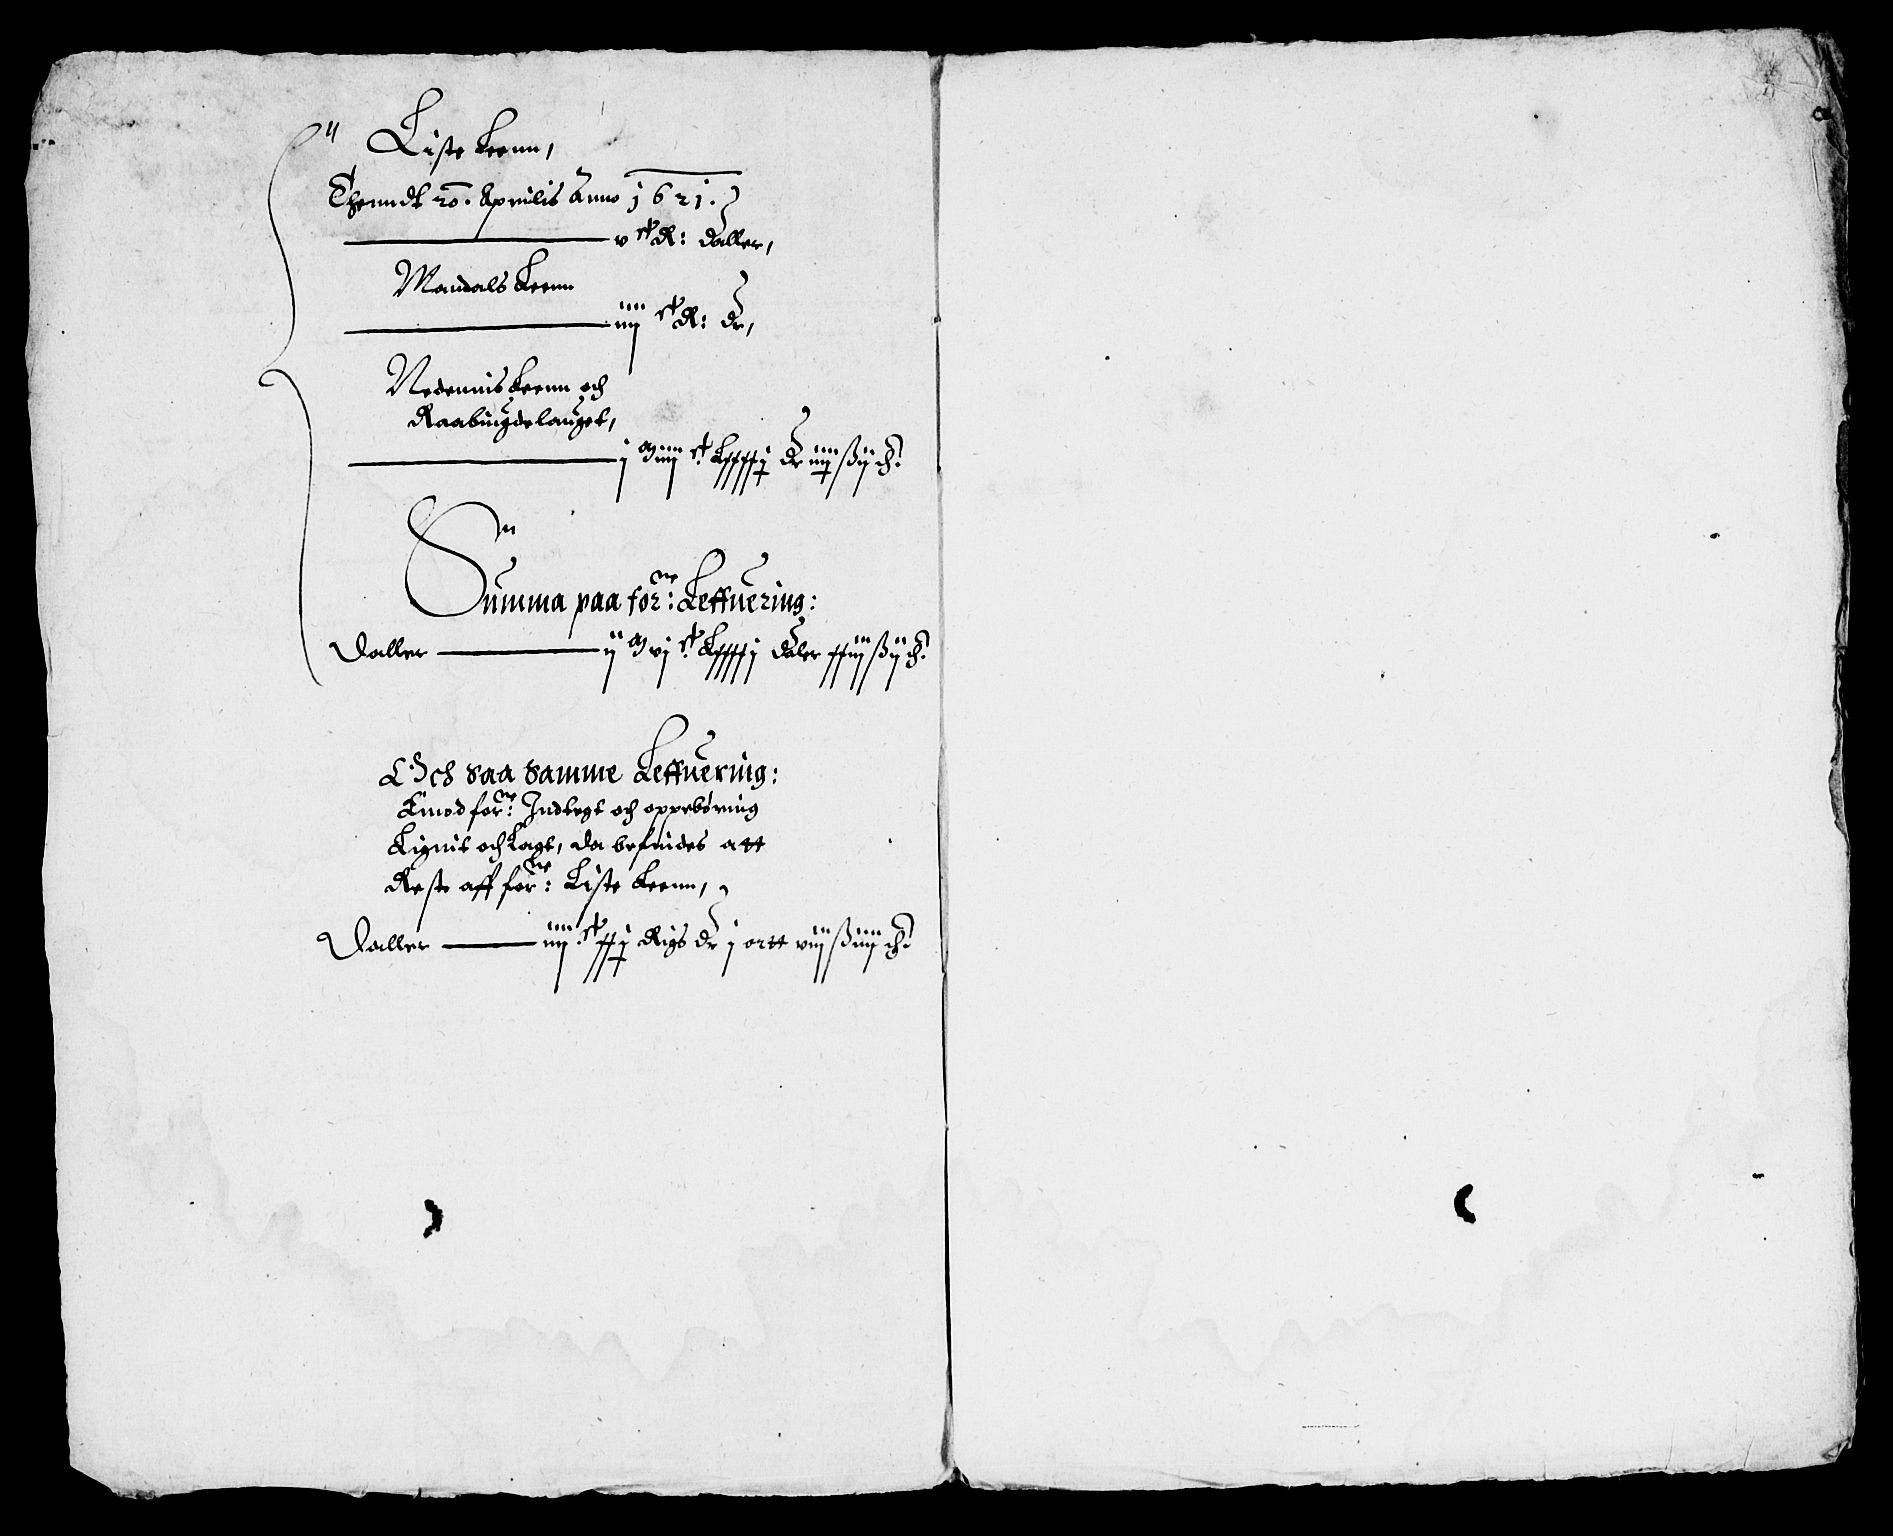 Liste Leenn,
Thenndt 20. Aprilis Anno 1621.
v C R: Daller,
Mandals Leenn
iiij C R: Dr,
Nedennis Leenn och
Raabiugdelauget,
j M iiij C Lxxxxj Dr iiij ß ij ch.
Summa paa forne: Leffuering:
Daller ij M vj C Lxxxxj Daler xxiij ß ij ch.
Och saa samme Leffuering:
Emod forne: Indtegt och oppebøring
Lignit och Lagt, da befindes att
Reste aff forne: Liste Leenn,
Daller iiij C xxj Rigs Dr j ortt viij ß iiij ch.